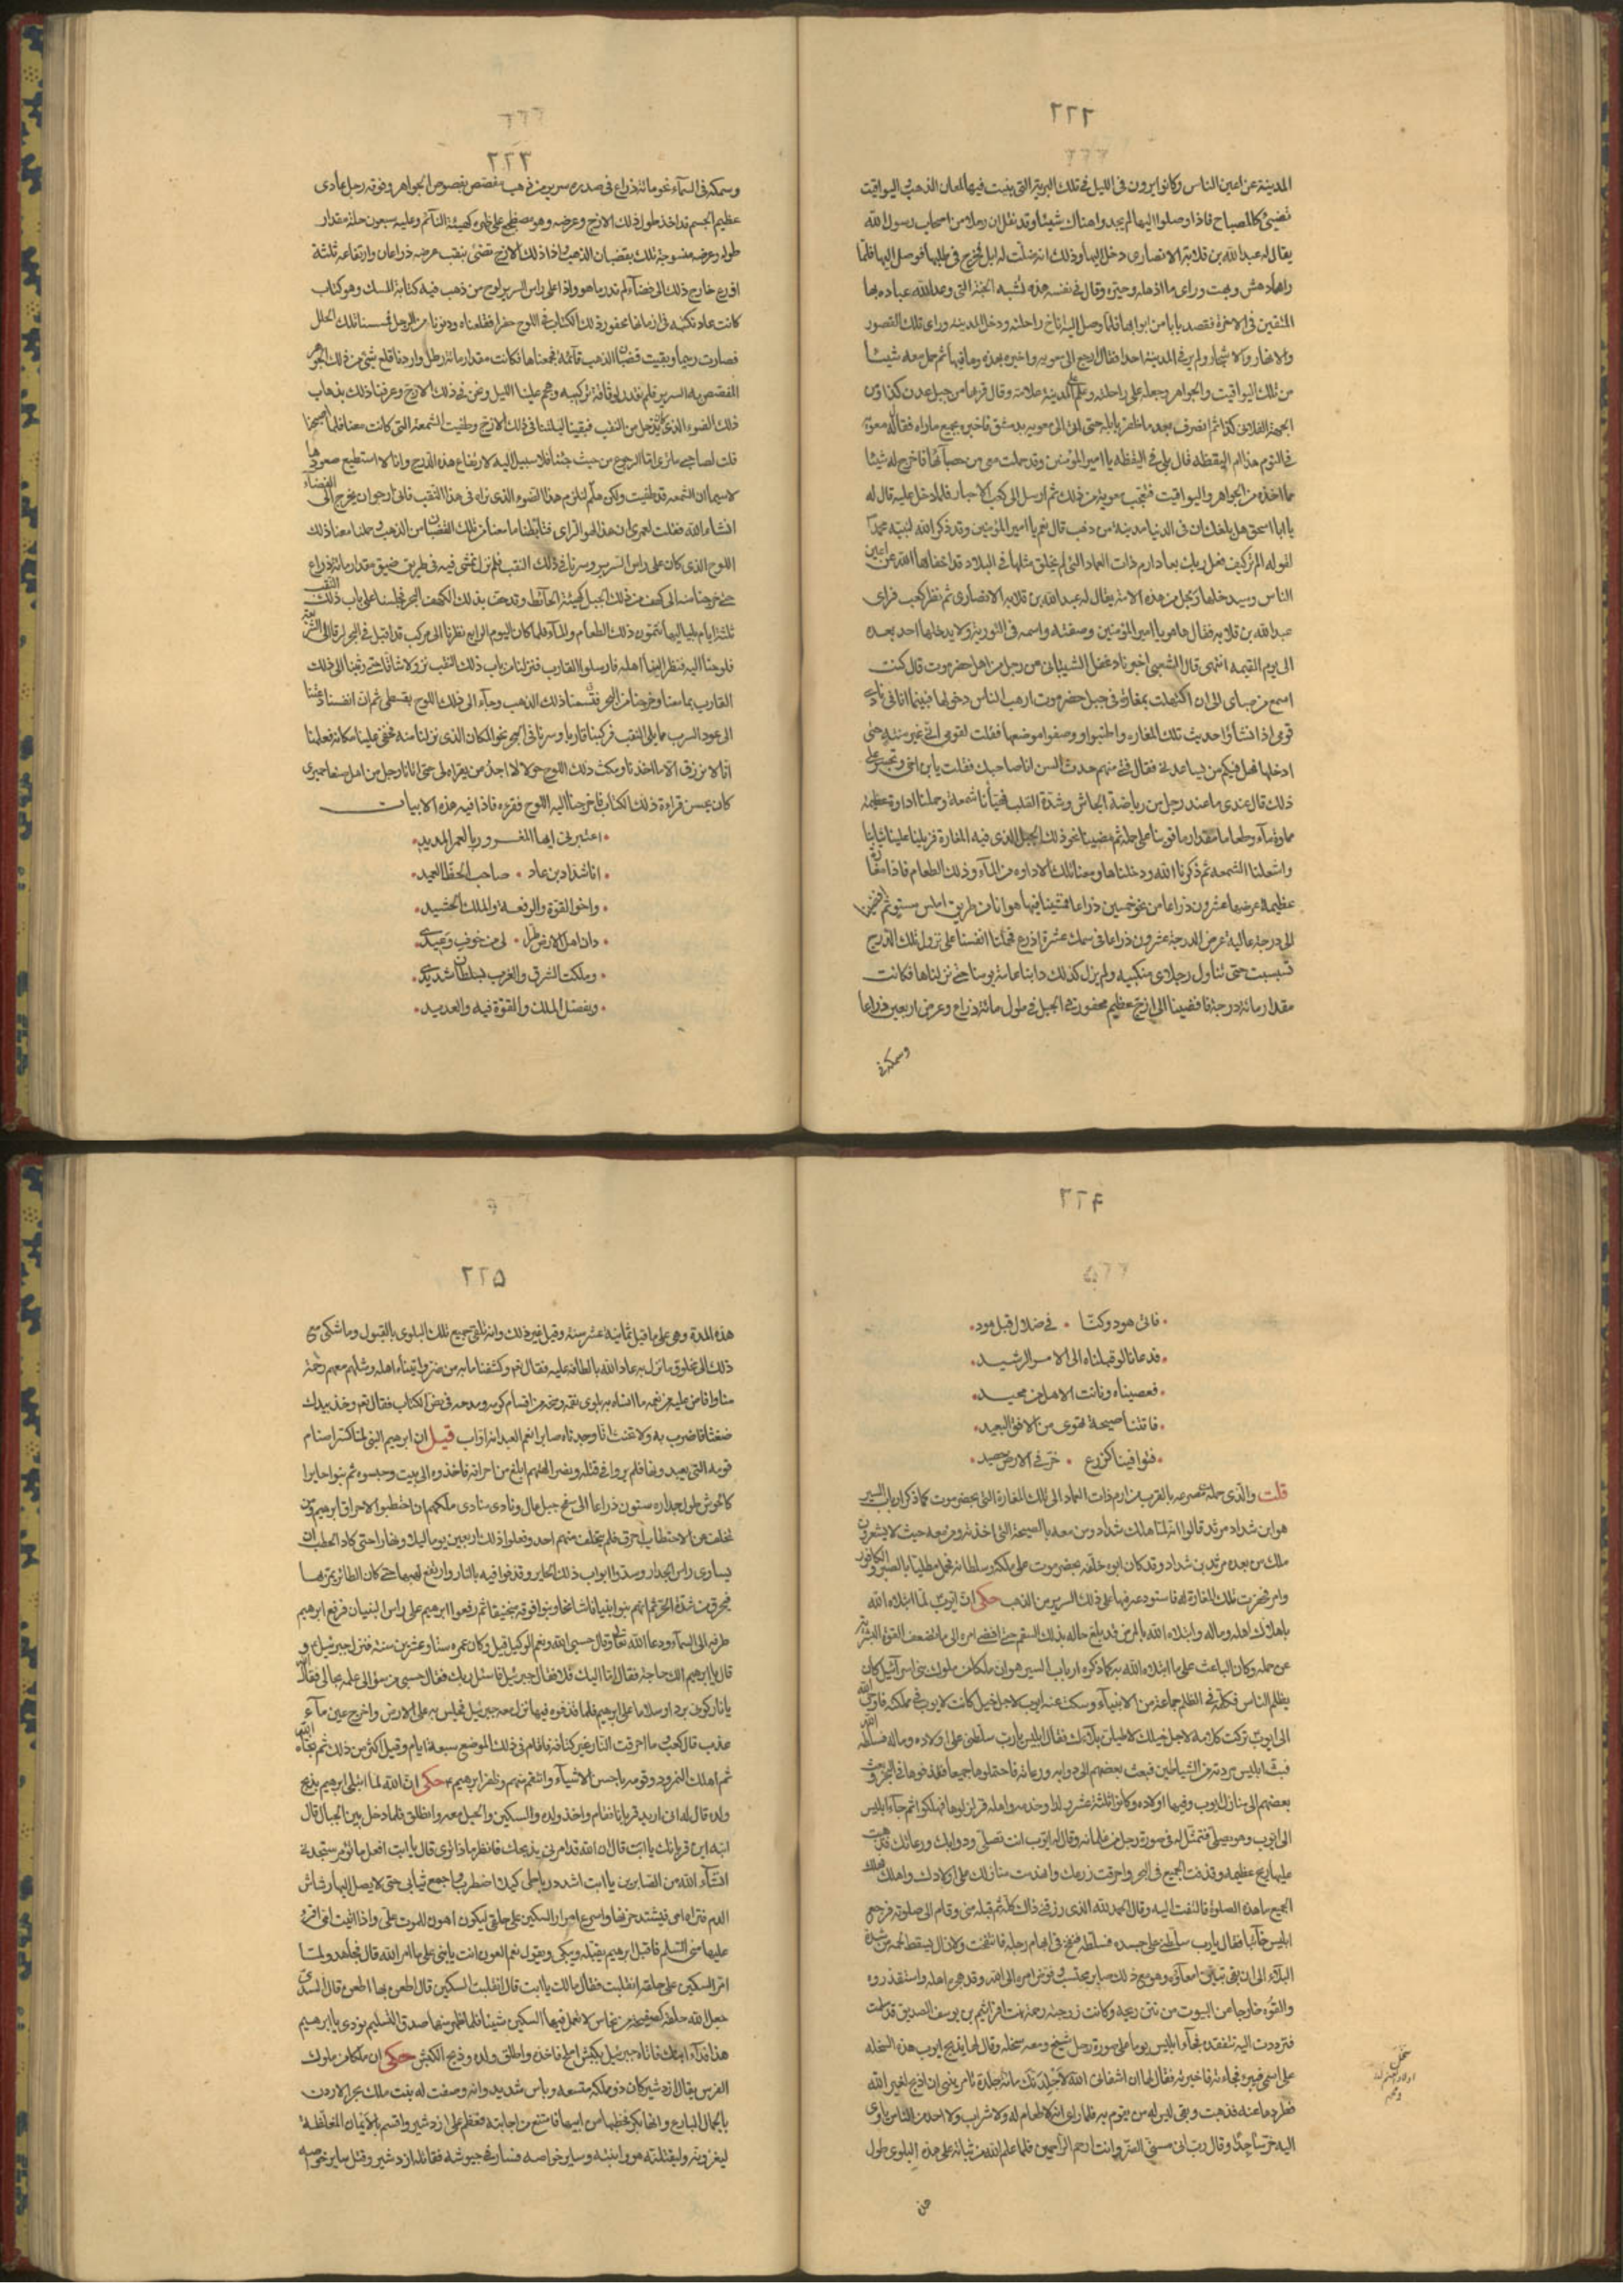 ٢٢٢
المدينة عن اعين الناس وكانوا يرون فى الليل فى تلك البرية التى بنيت فيها لمعان الذهب واليواقيت
تضيئ كالمصباح فاذا وصلوا اليها لم يجدوا هناك شيئا وقد نقل ان رجلا من اصحاب رسول الله
يقال له عبد الله بن قلابة الانصارى دخل اليها وذلك انه ضلت له ابل فخرج فى طلبها فوصل اليها فلما
راها دهش وبهت وراى ما اذهله وحيره وقال فى نفسه هذه تشبه الجنة التى وعد الله عباده بها
المتقين فى الاخرة فقصد بابا من ابوابها فلما وصل اليه اناخ راحلته ودخل المدينه وراى تلك القصور
والانهار والاشجار ولم ير فى المدينة احدا فقال ارجع الى معويه واخبره بهذه وما فيها ثم حمل معه شيئا
من تلك اليواقيت والجواهر وجعله على راحلته وعلم على المدينة علامة وقال قربها من جبل عدن كذا ومن
الجهة الفلانى كذا ثم انصرف بعد ما ظفر بابله حتى اتى الى معويه بدمشق فاخبره بجميع ماراه فقال له معويه
فى النوم هذا ام اليقظه قال بلى فى اليقظه يا امير المؤمنين وقد حملت معى من حصبائها فاخرج له شيئا
مما اخذه من الجواهر واليواقيت فتعجب معوية من ذلك ثم ارسل الى كعب الاحبار فلما دخل عليه قال له
يا ابا اسحق هل بلغك ان فى الدنيا مدينة من ذهب قال نعم يا امير المؤمنين وقد ذكر الله لنبيه محمد
الم تر كيف فعل ربك بعاد ارم ذات العماد التى لم يخلق مثلها فى البلاد قد اخفاها الله عن اعين
الناس وسيدخلها رجل من هذه الامة يقال له عبد الله بن قلابه الانصارى ثم نظر كعب فراى
عبد الله بن قلابه فقال هاهو يا امير المؤمنين وصفته واسمه فى التورية ولا يدخلها احد بعده
الى يوم القيمه انتهى قال الشعبى اخبرنا دغفل الشيبانى عن رجل من اهل حضرموت قال كنت
اسمع من صباى الى ان اكتهلت بمغارة فى جبل حضرموت ارهب الناس دخولها فبينما انا فى نادى
قومى اذا انشاؤا حديث تلك المغاره واطنبوا ووصفوا موضعها فقلت لقومى انى غير منته حتى
ادخلها فهل فيكم من يساعدنى فقال فتى منهم حدث السن انا صاحبك فقلت يا بن اخى وتجسر على
ذلك قال عندى ما عند رجل من رياضة الجاش وشدة القلب فهيأنا شمعة وحملنا اداوة عظيمة
مملوة ماء وطعاما مقدار ما قوينا على حمله ثم مضينا نحو ذلك الجبل الذى فيه المغارة فزملنا علينا ثيابنا
واشعلنا الشمعه ثم ذكرنا الله ودخلناها ومعنا تلك الاداوه من الماء وذلك الطعام فاذا مغارة
عظيمة عرضها عشرون ذراعا من نحو خمسين ذراعا فمشينا فيها هوانا فى طريق املس مستو ثم افضينا
الى درجة عالية عرض الدرجة عشرون ذراعا فى سمك عشرة اذرع فحملنا انفسنا على نزول تلك الدرج
مقدار مائة درجة فافضينا الى ازج عظيم محفور فى الجبل فى طول مائة ذراع وعرض اربعين ذراعا
وسمكه فى
٢٢٣
وسمكه فى السماء نحو مائة ذراع فى صدره سرير من ذهب مفصص بفصوص الجواهر وفوقه رجل عادى
عظيم الجسم قد اخذ طول ذلك الازج وعرضه وهو مضطجع على ظهره كهيئة النائم وعليه سبعون حلة مقدار
طوله وعرضه منسوجة تلك بقضبان الذهب واذا ذلك الازج تضئ بنقب عرضه ذراعان وارتفاعه ثلثة
اذرع خارج ذلك الى فضاء لم ندر ما هو واذا على راس السرير لوح من ذهب فيه كتابة المسند وهو كتاب
كانت عاد تكتبه فى ازمانها محفورة ذلك الكتاب فى اللوح حفرا فقلعناه ودنونا من الرجل فمسسنا تلك الحلل
فصارت رميما وبقيت قضبان الذهب قائمة فجمعناها فكانت مقدار مائة رطل واردنا قلع شئ من ذلك الجوهر
المفصص به السرير فلم نقدر لوثاقة تركيبه وهجم علينا الليل ونحن فى ذلك الازج وعرفنا ذلك بذهاب
ذلك الضوء الذى كان يدخل من النقب فبقينا ليلتنا فى ذلك الازج وطفيت الشمعة التى كانت معنا فلما اصبحنا
قلت لصاحبى ما ترى اما الرجوع من حيث جئنا فلا سبيل اليه لارتفاع هذه الدرج وانا لا استطيع صعودها
لاسيما ان الشمعه قد طفيت ولكن هلم لنلزم هذا الضوء الذى نراه فى هذا النقب فانى ارجو ان يخرج الى الفضاء
انشاء الله فقلت لعمرى ان هذا لهو الراى فتابطنا ما معنا من تلك القضبان من الذهب وحملنا معنا ذلك
اللوح الذى كان على راس السرير وسرنا فى ذلك النقب فلم نزل نمشى فيه فى طريق ضيق مقدار مائة ذراع
حتى خرجنا منه الى كهف من ذلك الجبل كهيئة الحائط وقد حف بذلك الكهف البحر فجلسنا على باب ذلك النقب
ثلثة ايام بلياليها نتمون ذلك الطعام والماء فلما كان اليوم الرابع نظرنا الى مركب قد اقبل فى البحر
فلوحنا اليه فنظر الينا اهله فارسلوا القارب فنزلنا من باب ذلك النقب نزولا شاقا حتى وثبنا الى ذلك
القارب بما معنا وخرجنا من البحر فقسمنا ذلك الذهب وجاء الى ذلك اللوح بقسطى ثم ان انفسنا دعتنا
الى عود السرب مما يلى النقب فركبنا قاربا وسرنا فى البحر نحو المكان الذى نزلنا منه فخفى علينا مكانه فعلمنا
انا لا نرزق الا ما اخذنا ومكث ذلك اللوح حولا لا اجد من يقراه لى حتى اتانا رجل من اهل صنعا حميرى
كان يحسن قراءة ذلك الكتاب فاخرجنا اليه اللوح فقرءه فاذا فيه هذه الابيات
اعتبر بى ايها المغرور بالعمر المديد
انا شداد بن عاد صاحب الحظ العميد
واخو القوة والرفعة والملك الحشيد
دان اهل الارض طرا لى من خوف وعيدى
وملكت الشرق والغرب بسلطان شديدى
وبفضل الملك والقوة فيه والعديد
٢٢۴
فاتى هود وكنا فى ضلال قبل هود
فدعانا لو قبلناه الى الامر الرشيد
فعصيناه ونادت الا هل من محيد
فاتتنا صيحة تهوى من الافق البعيد
فتوافينا كزرع خر فى الارض حصيد
قلت والذى حمله من قصره بالقرب من ارم ذات العماد الى تلك المغارة التى بحضرموت كما ذكر ارباب السير
هو ابن شداد مرثد قالوا انه لما هلك شداد ومن معه بالصيحة التى اخذته ومن معه حيث لا يشعرون
ملك من بعده مرثد بن شداد وقد كان ابوه خلفه بحضرموت على ملكه وسلطانه فحمل مطليا بالصبر والكافور
وامر فحفرت تلك المغارة له فاستودعه فيها على ذلك السرير من الذهب حكى ان ايوب لما ابتلاه الله
باهلاك اهله وماله وابتلاه الله بالمرض قد بلغ حاله بذلك السقم حتى افضى امره الى ما تضعف القوة البشرية
عن حمله وكان الباعث على ما ابتلاه الله به كما ذكره ارباب السير هو ان ملكا من ملوك بنى اسرائيل كان
يظلم الناس فكلمه فى الظلم جماعة من الانبياء وسكت عنه ايوب لاجل خيل كانت لايوب فى مملكته فاوحى الله
الى ايوب تركت كلامه لاجل خيلك لاطيلن بلاءك فقال ابليس يا رب سلطنى على اولاده وماله فسلطه الله
فبث ابليس مردته من الشياطين فبعث بعضهم الى دوابه ورعاته فاحتملوها جميعا فقذفوها فى البحر وبعث
بعضهم الى منازل ايوب وفيها اولاده وكانوا ثلثة عشر ولدا وخدمه واهله فزلزلوها فهلكوا ثم جاء ابليس
الى ايوب وهو يصلى فتمثل له فى صورة رجل من غلمانه وقال له ايوب انت تصلى ودوابك ورعاتك قد هبت
عليها ريح عظيمه وقذفت الجميع فى البحر واحرقت زرعك وانهدمت منازلك على اولادك واهلك فهلك
الجميع ما هذه الصلوة فالتفت اليه وقال الحمد لله الذى رزقنى ذلك كله ثم قبله منى وقام الى صلوته فرجع
ابليس خائبا فقال يا رب سلطنى على جسده فسلطه فنفخ فى ابهام رجله فانتفخت ولا زال يسقط لحمه من شدة
البلاء الى ان بقى تبين امعاؤه وهو مع ذلك صابر محتسب مفوض امره الى الله وقد هجره اهله واستقذروه
والقوه خارجا من البيوت من نتن ريحه وكانت زوجته رحمة بنت افرائيم بن يوسف الصديق قد سلمت
فترددت اليه تتفقده فجاء ابليس يوما على صورة رجل شيخ ومعه سخله وقال لها يذبح ايوب هذه السخله
على اسمى فيبرء فجاءته فاخبرته فقال لها ان اشفانى الله لاجلدنك مائة جلدة تامرينى ان اذبح لغير الله
فطردها عنه فذهبت وبقى ليس له من يقوم به فلما راى انه لا طعام له ولا شراب ولا احد من الناس ياوى
اليه خر ساجدا وقال رب انى مسنى الضر وانت ارحم الراحمين فلما علم الله من ثباته على هذه البلوى طول
٢٢۵
هذه المدة وهى على ما قيل ثمانية عشر سنة وقيل غير ذلك وانه تلقى جميع تلك البلوى بالقبول وما شكى مع
ذلك الى مخلوق ما نزل به عاد الله بالطافه عليه فقال تع وكشفنا ما به من ضر واتيناه اهله ومثلهم معهم رحمة
منا وافاض عليه من نعمه ما انساه بلوى نقمه ومنحه من اقسام كرمه ومدحه فى نص الكتاب فقال تع وخذ بيدك
ضغثا فاضرب به ولا تحنث انا وجدناه صابرا نعم العبد انه اواب قيل ان ابرهيم النبى لما كسر اصنام
قومه التى يعبدونها فلم يروا فى قتله ونصر الهتهم ابلغ من احراقه فاخذوه الى بيت وحبسوه ثم بنوا حايرا
كالحوش طول جداره ستون ذراعا الى سفح جبل عال ونادى منادى ملكهم ان احتطبوا لاحراق ابرهيم ومن
تخلف عن الاحتطاب احرق فلم يتخلف منهم احد وفعلوا ذلك اربعين يوما ليلا ونهارا حتى كاد الحطب ان
يساوى راس الجدار وسدوا ابواب ذلك الحاير وقذفوا فيه بالنار وارتفع لهبها حتى كان الطائر يمر بها
فيحرق من شدة الحر ثم انهم بنوا بنيانا شامخا وبنوا فوقه منجنيقا ثم رفعوا ابرهيم على راس البنيان فرفع ابرهيم
طرفه الى السماء ودعا الله تعالى وقال حسبى الله ونعم الوكيل قيل وكان عمره ستا وعشرين سنة فنزل جبرئيل و
قال يا ابرهيم الك حاجة فقال اما اليك فلا فقال جبرئيل فاسئل ربك فقال حسبى من سؤالى علمه بحالى فقال الله
يا نار كونى بردا وسلاما على ابرهيم فلما قذفوه فيها نزل معه جبرئيل فجلس به على الارض واخرج عين ماء
عذب قال كعب ما احرقت النار غير كتافه فاقام فى ذلك الموضع سبعة ايام وقيل اكثر من ذلك ثم نجاه الله
ثم اهلك النمرود وقومه باخس الاشياء وانتقم منهم وظفر ابرهيم بهم حكى ان الله لما ابتلى ابرهيم بذبح
ولده قال له انى اريد قربانا فقام واخذ ولده والسكين والحبل معه وانطلق فلما دخل بين الجبال قال
ابنه اين قربانك يا ابت قال ان الله قد امرنى بذبحك فانظر ماذا ترى قال يا ابت افعل ما تؤمر ستجدنى
انشاء الله من الصابرين يا ابت اشدد رباطى كيلا اضطرب واجمع ثيابى حتى لا يصل اليها رشاش
الدم فتراه امى فيشتد حزنها واسرع امرار السكين على حلقى ليكون اهون للموت على واذا اتيت امى اقرء
عليها منى السلم فاقبل ابرهيم يقبله ويبكى ويقول نعم العون انت يا بنى على ما امر الله قال مجاهد ولما
امر السكين على حلقه انقلبت فقال مالك يا ابت قال انقلبت السكين قال اطعن بها اطعن قال السدى
جعل الله حلقه كصفيحة من نحاس لا تعمل فيها السكين شيئا فلما ظهر منهما صدق التسليم نودى يا ابرهيم
هذا فداء ابنك فاتاه جبرئيل بكبش املح فاخذه واطلق ولده وذبح الكبش حكى ان ملكا من ملوك
الفرس يقال ازدشير كان ذو ملكه متسعه وباس شديد وانه وصفت له بنت ملك بحر الاردن
بالجمال البارع وانها بكر فخطبها من ابيها فامتنع من اجابته فعظم على ازدشير واقسم بالايمان المغلظة
ليغزونه وليقتلنه هو وابنته وساير خواصه فسار فى جيوشه فقاتله ازدشير وقتل ساير خواصه